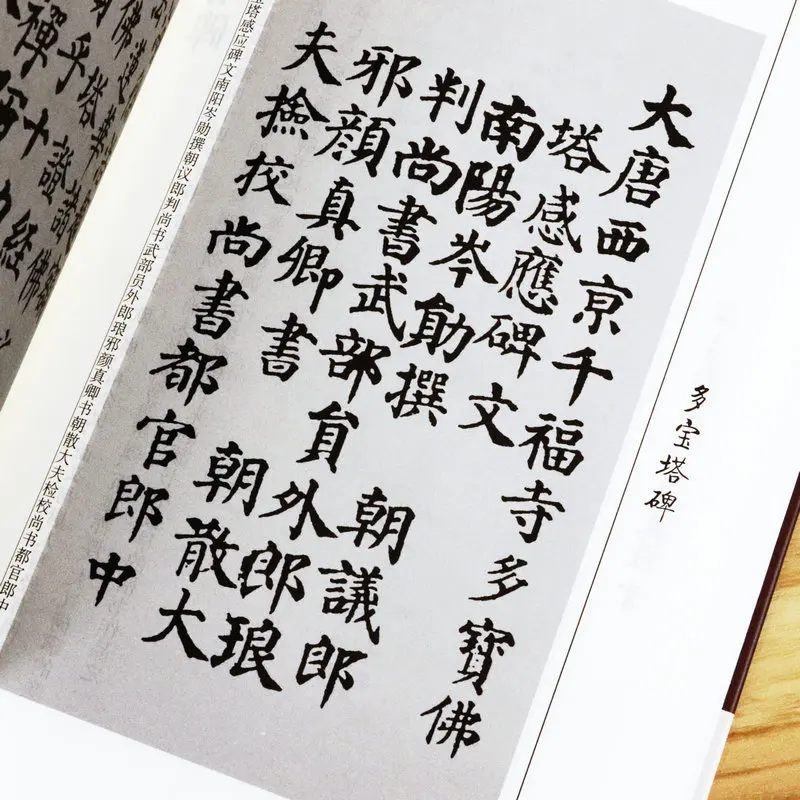 多宝塔碑
大唐西亰千福寺多寶佛
塔感應碑文
南陽岑勛撰 朝議郎
判尚書武部貟外郎琅
邪顔真卿書 朝散大
夫撿校尚書都官郎中
宝塔感应碑文南阳岑勋撰朝议郎判尚书武部员外郎琅邪颜真卿书朝散大夫检校尚书都官郎中